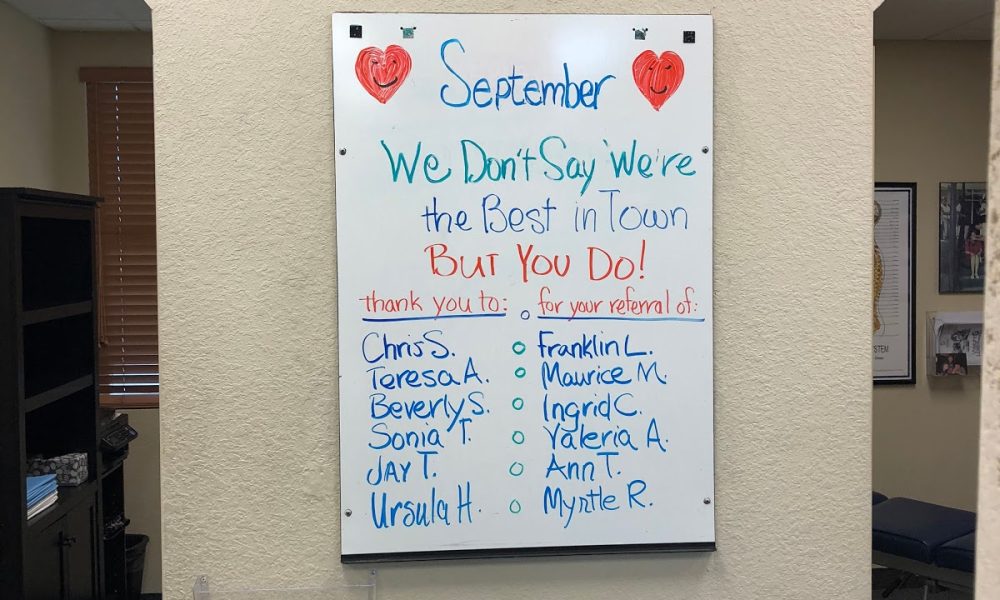 September
We Don't Say We're
the Best in Town
But You Do!
thank you to: for your referral of:
Chris S. Franklin L.
Teresa A. Maurice M.
Beverly S. Ingrid C.
Sonia T. Valeria A.
Jay T. Ann T.
Ursula H. Myrtle R.
STEM